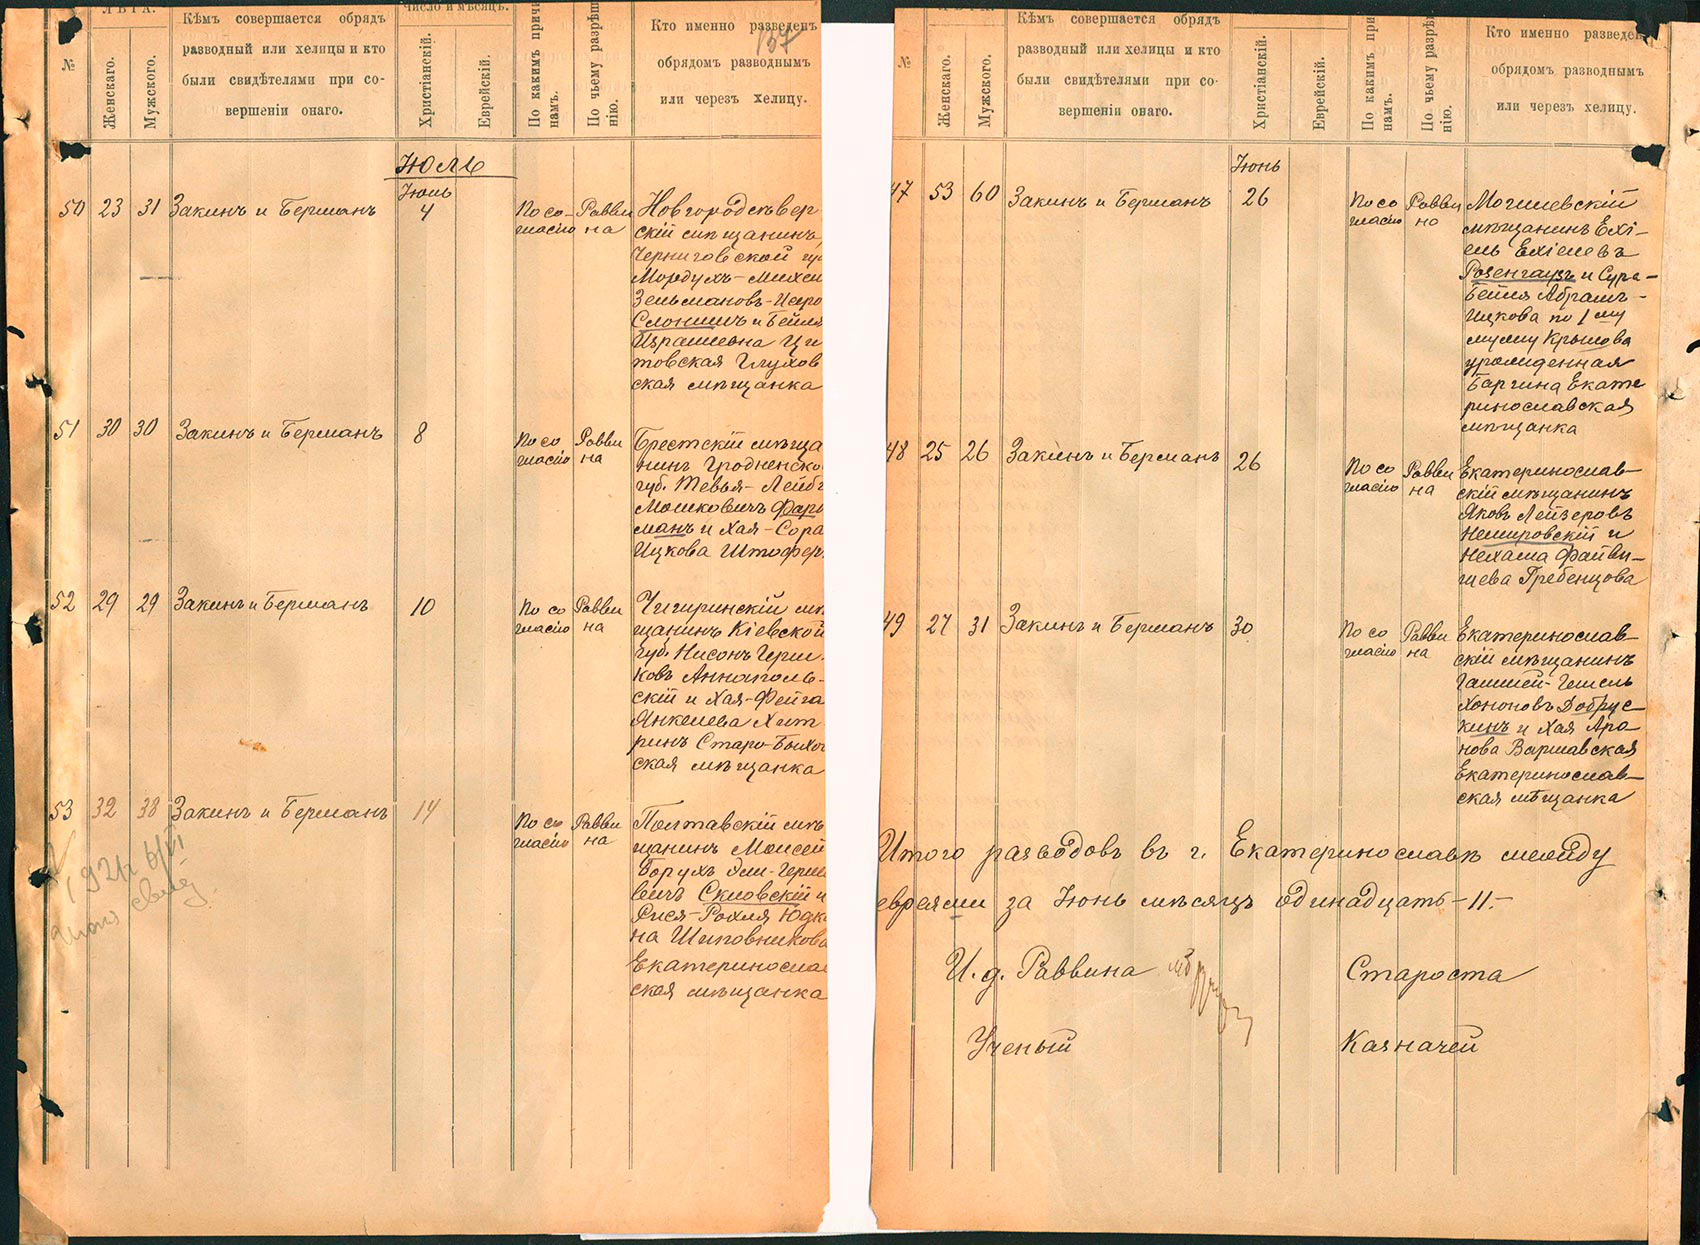 ЛѢТА.
№
Женскаго.
Мужского.
Кѣмъ совершается обрядъ
разводный или хелицы и кто
были свидѣтелями при со-
вершеніи онаго.
Число и мѣсяцъ.
Христіанскій.
Еврейскій.
По какимъ причи
намъ.
По чьему разрѣш
нію.
Кто именно разведенъ
обрядомъ разводнымъ
или черезъ хелицу.
137
Июль
Июль
50 23 31 Закинъ и Берманъ 4
По со-
гласію
Равви
на
Новгородсѣвер
скій мѣщанинъ
Черниговской гу
Мордухъ-Михел
Зельмановъ-
Слонимъ и Бейля
Израилевна
товская Глухов
ская мѣщанка
51 30 30 Закинъ и Берманъ 8
По со
гласію
Равви
на
Брестскій мѣща
нинъ Гродненско
губ. Тевья-Лейбъ
Мошковичъ Фарб
манъ и Хая-Сора
Ицкова Штофер
52 29 29 Закинъ и Берманъ 10
По со
гласію
Равви
на
Чигиринскій мѣ
щанинъ Кіевской
губ. Нисонъ Герш
ковъ Аннаполь-
скій и Хая-Фейга
Янкелева Хит
ринъ Старо-Быхо
ская мѣщанка
53 32 38 Закинъ и Берманъ 14
По со
гласію
Равви
на
Полтавскій мѣ
щанинъ Моисей
Борухъ Эли-Герш
вичъ Скловскій и
Рися-Рохля Юдк
на Шиповникова
Екатериносла
ская мѣщанка
№
Женскаго.
Мужского.
Кѣмъ совершается обрядъ
разводный или хелицы и кто
были свидѣтелями при со-
вершеніи онаго.
Христіанскій.
Еврейскій.
По какимъ при
намъ.
По чьему разрѣ
нію.
Кто именно разведен
обрядомъ разводнымъ
или черезъ хелицу.
Июнь
47 53 60 Закинъ и Берманъ 26
По со
гласію
Равви
на
Могилевскій
мѣщанинъ Ехі-
ель Ехіелевъ
Розенгаузъ и Сура-
Бейля Абрамъ-
Ицкова по 1му
мужу Крымова
урожденная
Баргина Екате
ринославская
мѣщанка
48 25 26 Закинъ и Берманъ 26
По со
гласію
Равви
на
Екатеринослав-
скій мѣщанинъ
Яковъ Лейзеровъ
Немировскій и
Нехама Файви-
шева Гребенцова
49 27 31 Закинъ и Берманъ 30
По со
гласію
Равви
на
Екатеринослав-
скій мѣщанинъ
Гешель
Хононовъ Добрус-
кинъ и Хая Аро-
нова Варшавская
Екатеринослав-
ская мѣщанка
Итого разводовъ въ г. Екатеринославѣ между
евреями за Июнь мѣсяцъ одинадцать-11.-
И. д. Раввина
Староста
Ученый
Казначей